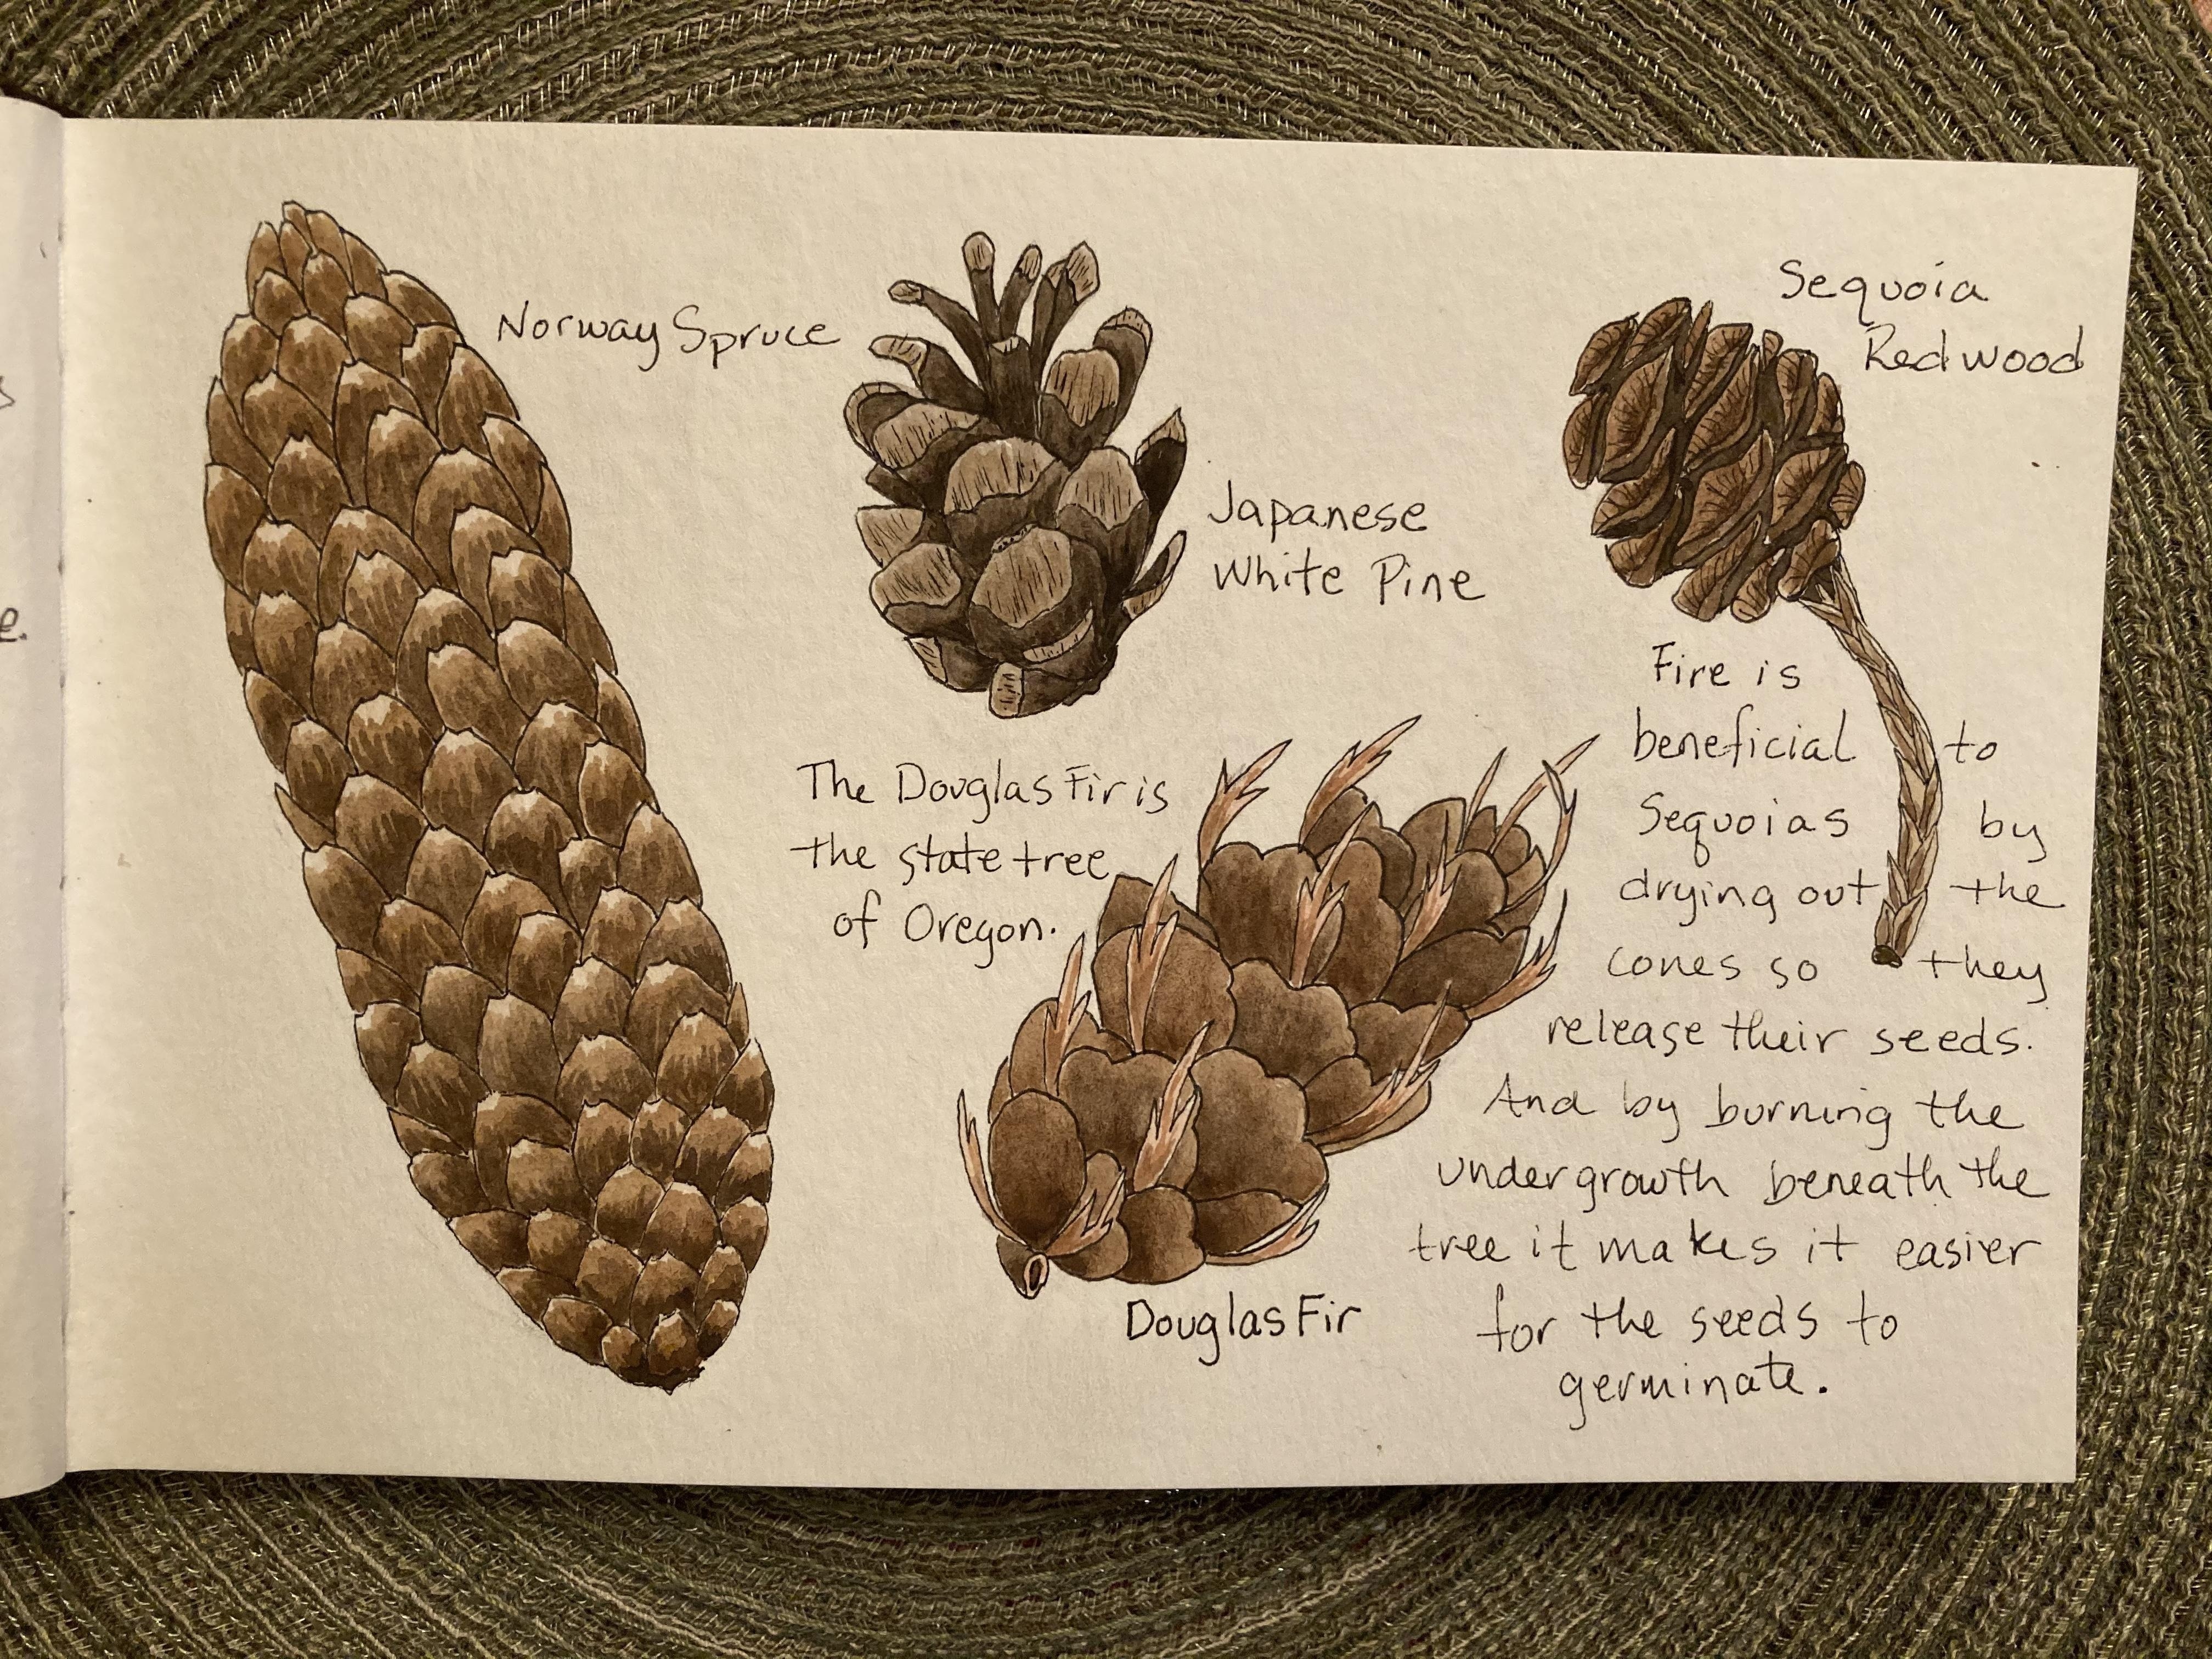 Norway Spruce
Japanese
White Pine
Sequoia
Redwood
The Douglas Fir is
the state tree
of Oregon.
Douglas Fir
Fire is
beneficial to
Sequoias by
drying out the
cones so they
release their seeds.
And by burning the
undergrowth beneath the
tree it makes it easier
for the seeds to
germinate.